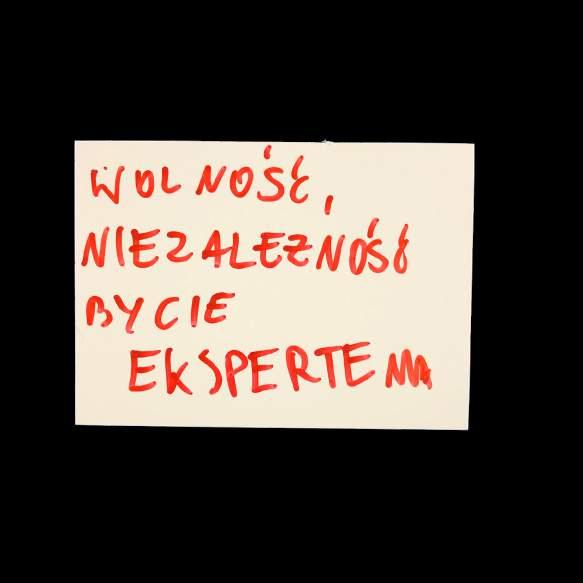 WOLNOŚĆ,
NIEZALEŻNOŚĆ
BYCIE
EKSPERTEM